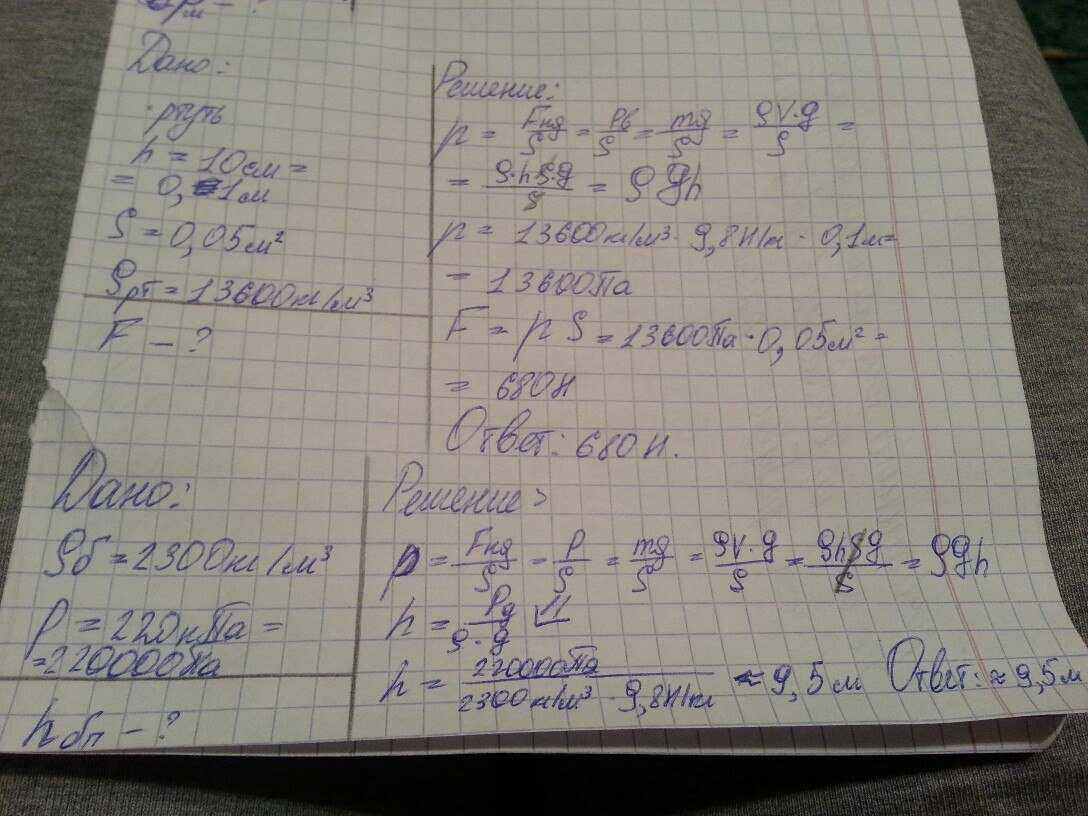 Дано:
ртуть
h = 10см =
= 0,1м
S = 0,05м²
ρрт = 13600кг/м³
F - ?
Решение:
p = Fнд/S = Pв/S = mg/S = ρV·g/S =
= ρ·h·S·g/S = ρgh
p = 13600кг/м³ · 9,8Н/кг · 0,1м=
= 13600Па
F = pS = 13600Па·0,05м² =
= 680Н
Ответ: 680Н.
Дано:
ρб = 2300кг/м³
P = 220кПа =
=220000Па
hбп - ?
Решение:
p = Fнд/S = P/S = mg/S = ρV·g/S = ρhSg/S = ρgh
h = Pд/ρ·g
h = 220000Па/2300кг/м³ · 9,8Н/кг ≈ 9,5м Ответ: ≈ 9,5м